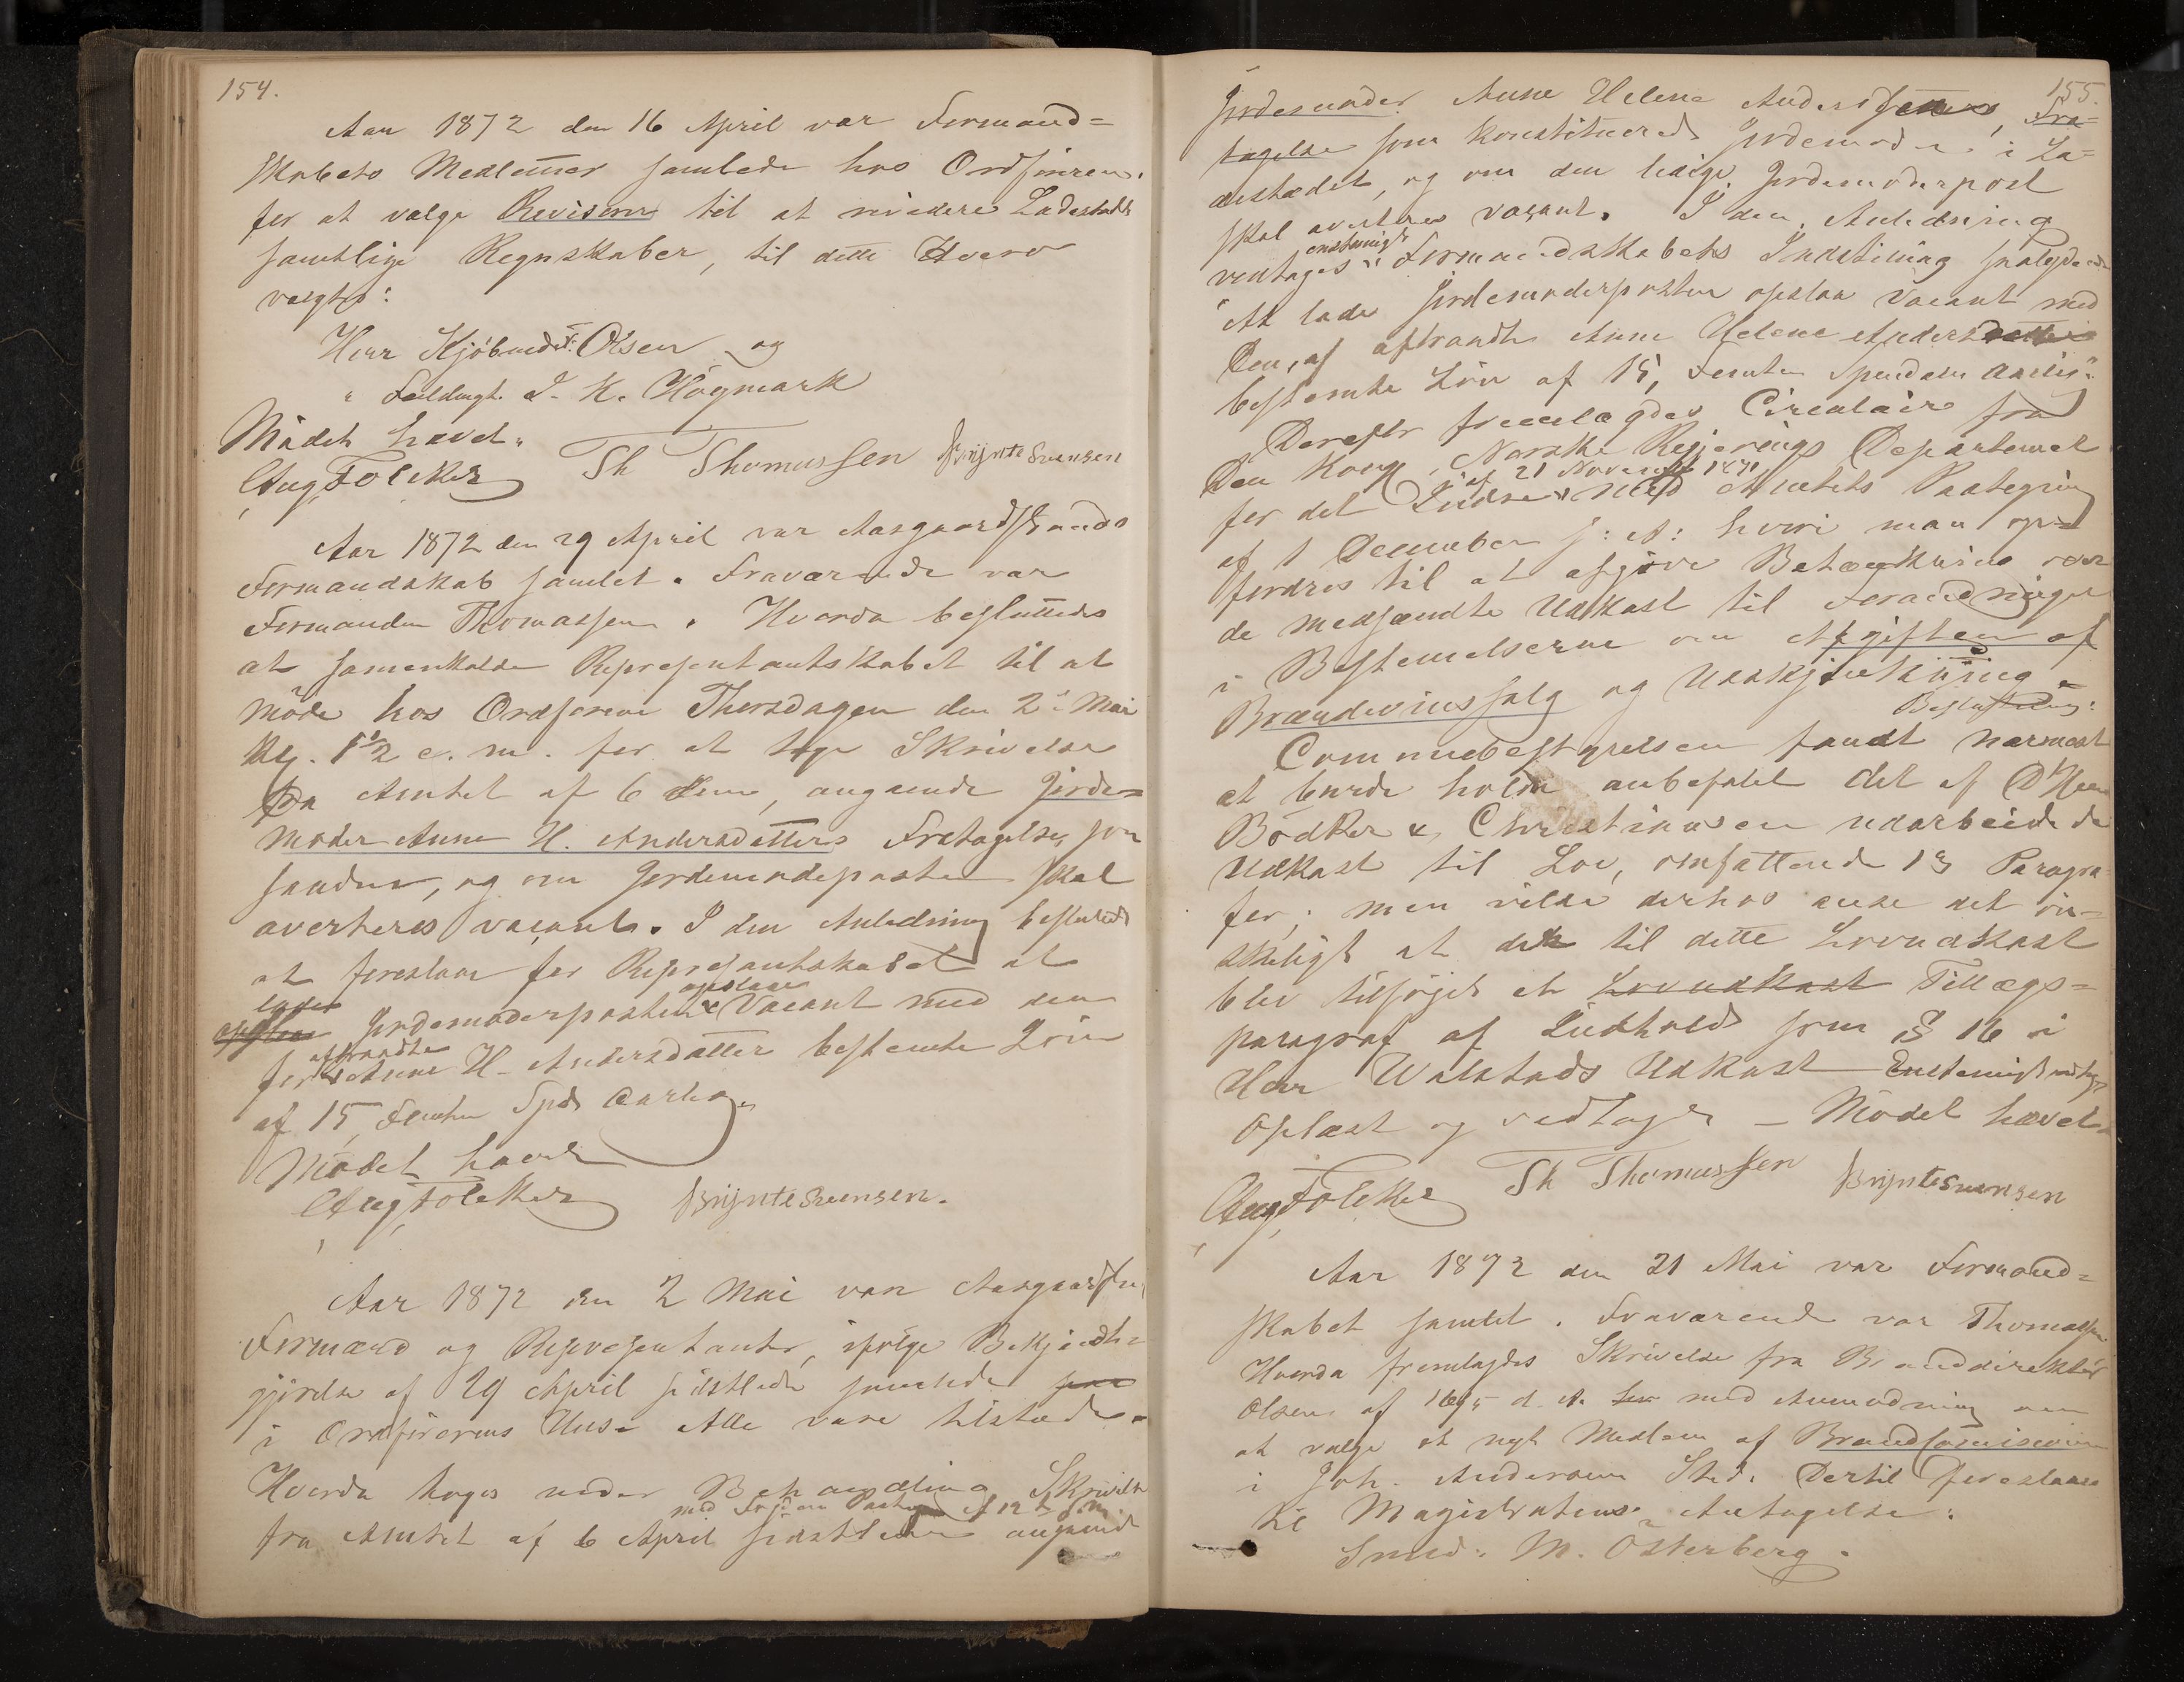 154.
Aar 1872 den 16 April var Formand=
skabets Medlemer samlede hos Ordføreren
for at valge Revisorer til at revidere Ladestedets
samtlige Regnskaber, til dette Hverv
valgtes:
Herr Kjøbmd Olsen og
" Fuldmgt. I. K. Högmark
Mödet hævet.
Aug Foleker Th Thomassen Brynte Svensen
Aar 1872 den 29 April var Aasgaardstrands
Formandskab samlet. Fraværende var
Formanden Thomassen. Hvorda besluttedes
at samenkalde Representantskabet til at
möde hos Ordføreren Thorsdagen den 2den Mai
Kl. 5 1/2 e. m. for at tage Skrivelse
fra Amtet af 6 dens, angaaende Jorde=
moder Anne H. Andersdatters Fratagelse, som
saadan, og om Jordemodeposten skal
averteres vacant. I den Anledning besluttedes
at foreslaa for Represantskabet at
lade opslaa
Jordemoderposten Vacant med den
aftraadte
for Anne H. Andersdatter bestemte Løn
af 15, Femten Spd aarlig.
Mödet hævet
Aug Foleker Brynte Svensen.
Aar 1872 den 2 Mai var Aasgaardstr.
Formænd og Representanter, ifölge Bekjendt=
gjörelse af 29 April sidstleden samlede
i Ordførerens Huus. Alle vare tilstæde.
Hvorda toges under Behandling Skrivelse
med Fogdens Paategn af 12te s. m.
fra Amtet af 6 April sidstleden angaaende
155.
Jordemoder Anne Helene Andersdatters, Fra=
tagelse som konstitueret Jordemoder i La=
destædet, og om den ledige Jordemoderpost
skal averteres vacant. I den Anledning
enstemigt
vedtages Formandskabets Indstilling saalydende
"At lade Jordemoderposten opslaa Vacant med
den, af aftraadte Anne Helene Andersdatter
bestemte Løn af 15, Femten Speciedaler aarlig".
Derefter fremlagdes Circulair fra
Den Kong. Norske Regjerings Departemet
af 21 November 1871
for det Indre med Amtets Paategning
af 1 December s: A: hvori man op=
fordres til at afgive Betænkning over
de medsendte Udkast til Forandringer
i Bestemelserne om Afgiften af
Brændeviinssalg og Udskjænkning.
Beslutning:
Communebestyrelsen fandt nærmest
at burde holde anbefalet det af D'Herr
Bödker & Christiansen udarbeidede
Udkast til Lov, omfattende 13 Paragra=
fer; men vilde derhos anse det øn=
skeligt at der til dette Lovudkast
blev tilføjet et Lovudkast Tillægs=
paragraf af Indhold som § 16 i
Herr Walstads Udkast Enstemigt vedtaget
Oplæst og vedtaget — Mödet hævet
Aug Foleker Th Thomassen Brynte Svensen
Aar 1872 den 21 Mai var Formand=
skabet samlet. Fraværende var Thomassen
Hvorda fremlagdes Skrivelse fra Branddirektör
Olsen af 16/5 d. A. med Anmodning om
at valge et nyt Medlem af Brandkomisionen
i Joh. Andersens Sted. Dertil foreslaaes
til Magistratens Antagelse:
Smed: M. Österberg.